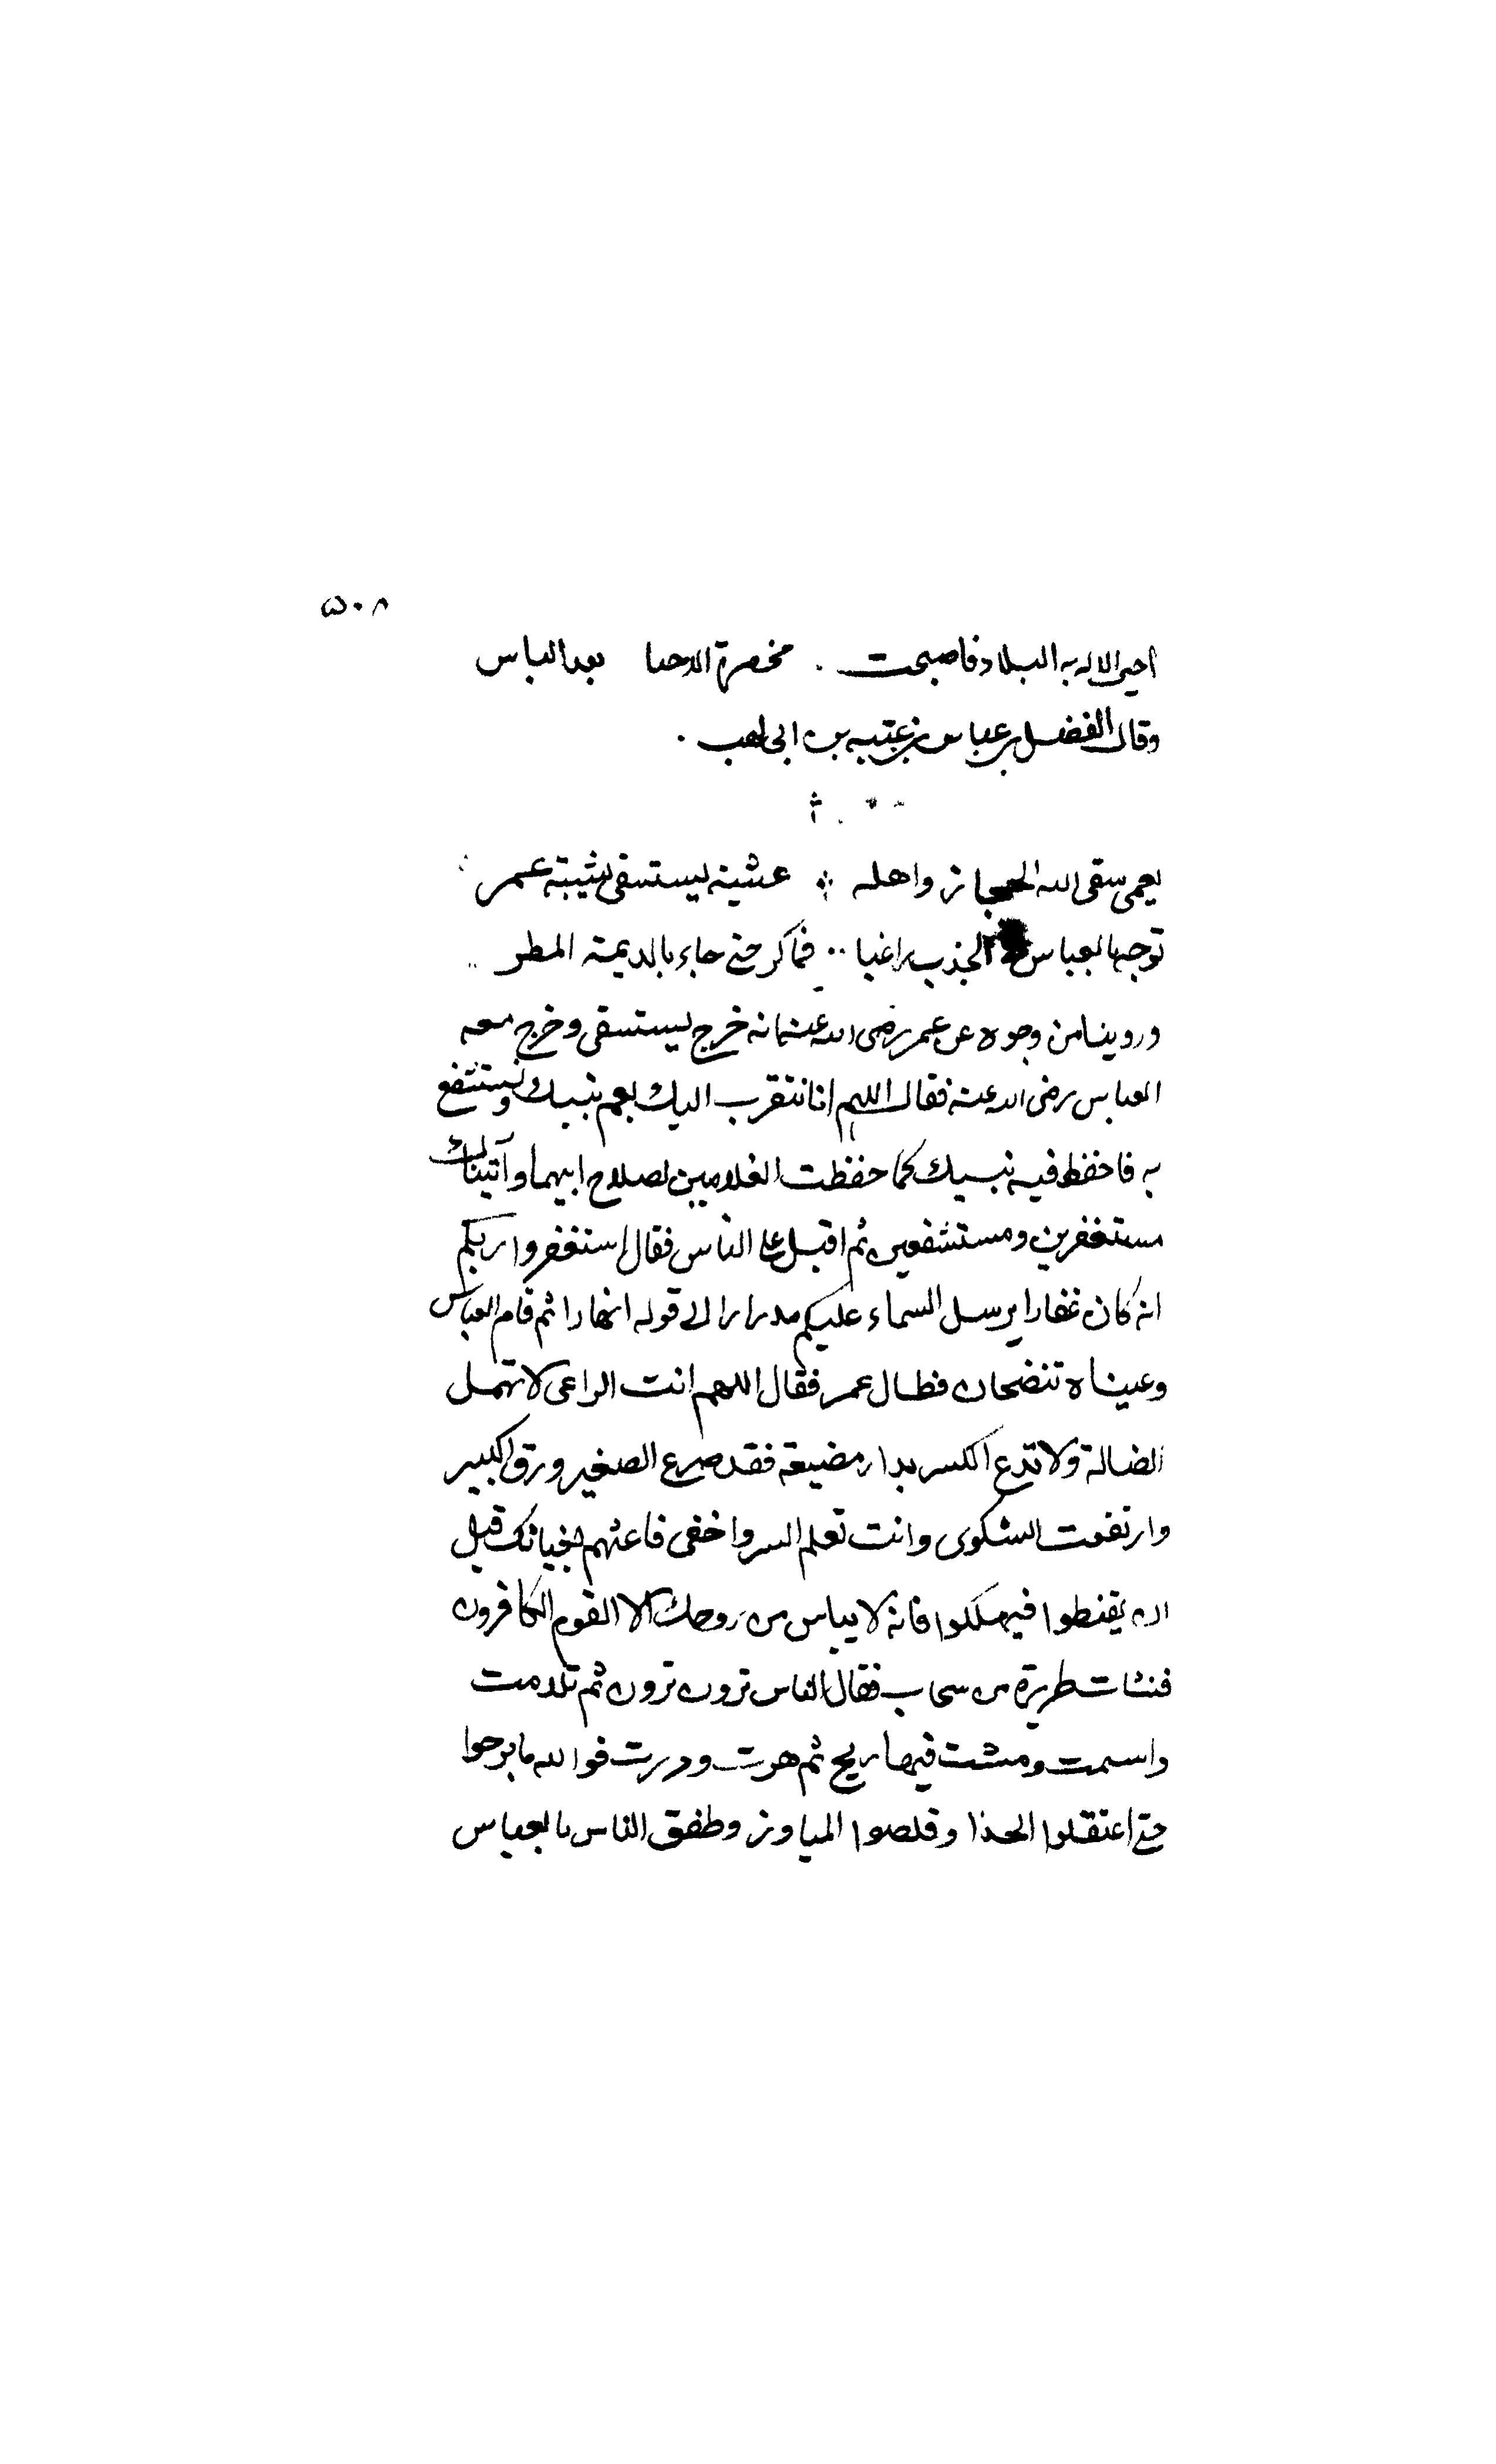 ٥٠٨
احيى الاله به البلاد فاصبحت . مخصرة الاحيا بعد الياس
وقال الفضل بن عباس بن عتبه بن ابى لهب .
بعمى سقى الله الحجاز واهله عشية يستسقى بشيبته عمر
توجه بالعباس الجذب راغبا .. فما كر حتى جاء بالديمة المطر ..
وروينا من وجوه عن عمر رضى الله عنه انه خرج يستسقى وخرج معه
العباس رضى الله عنه فقال اللهم انا نتقرب اليك بعم نبيك ونستشفع
به فاحفظ فيه نبيك كما حفظت الغلامين لصلاح ابيهما وآتيناك
مستغفرين ومستشفعين ثم اقبل على الناس فقال استغفروا ربكم
انه كان غفارا يرسل السماء عليكم مدرارا الى قوله انهارا ثم قام العباس
وعيناه تنضحان فطال عمر فقال اللهم انت الراعى لا تهمل
الضالة ولا تدع الكسير بدار مضيعة فقد صرع الصغير ورق الكبير
وارتفعت الشكوى وانت تعلم السر واخفى فاغثهم بغياثك قبل
ان يقنطوا فيهلكوا فانه لا يياس من روحك الا القوم الكافرون
فنشات طريرة من سحاب فقال الناس ترون ترون ثم تلامت
واستمت ومشت فيها ريح ثم هرت ودرت فوالله ما برحوا
حتى اعتقلوا الحذا وقلصوا الميازر وطفق الناس بالعباس